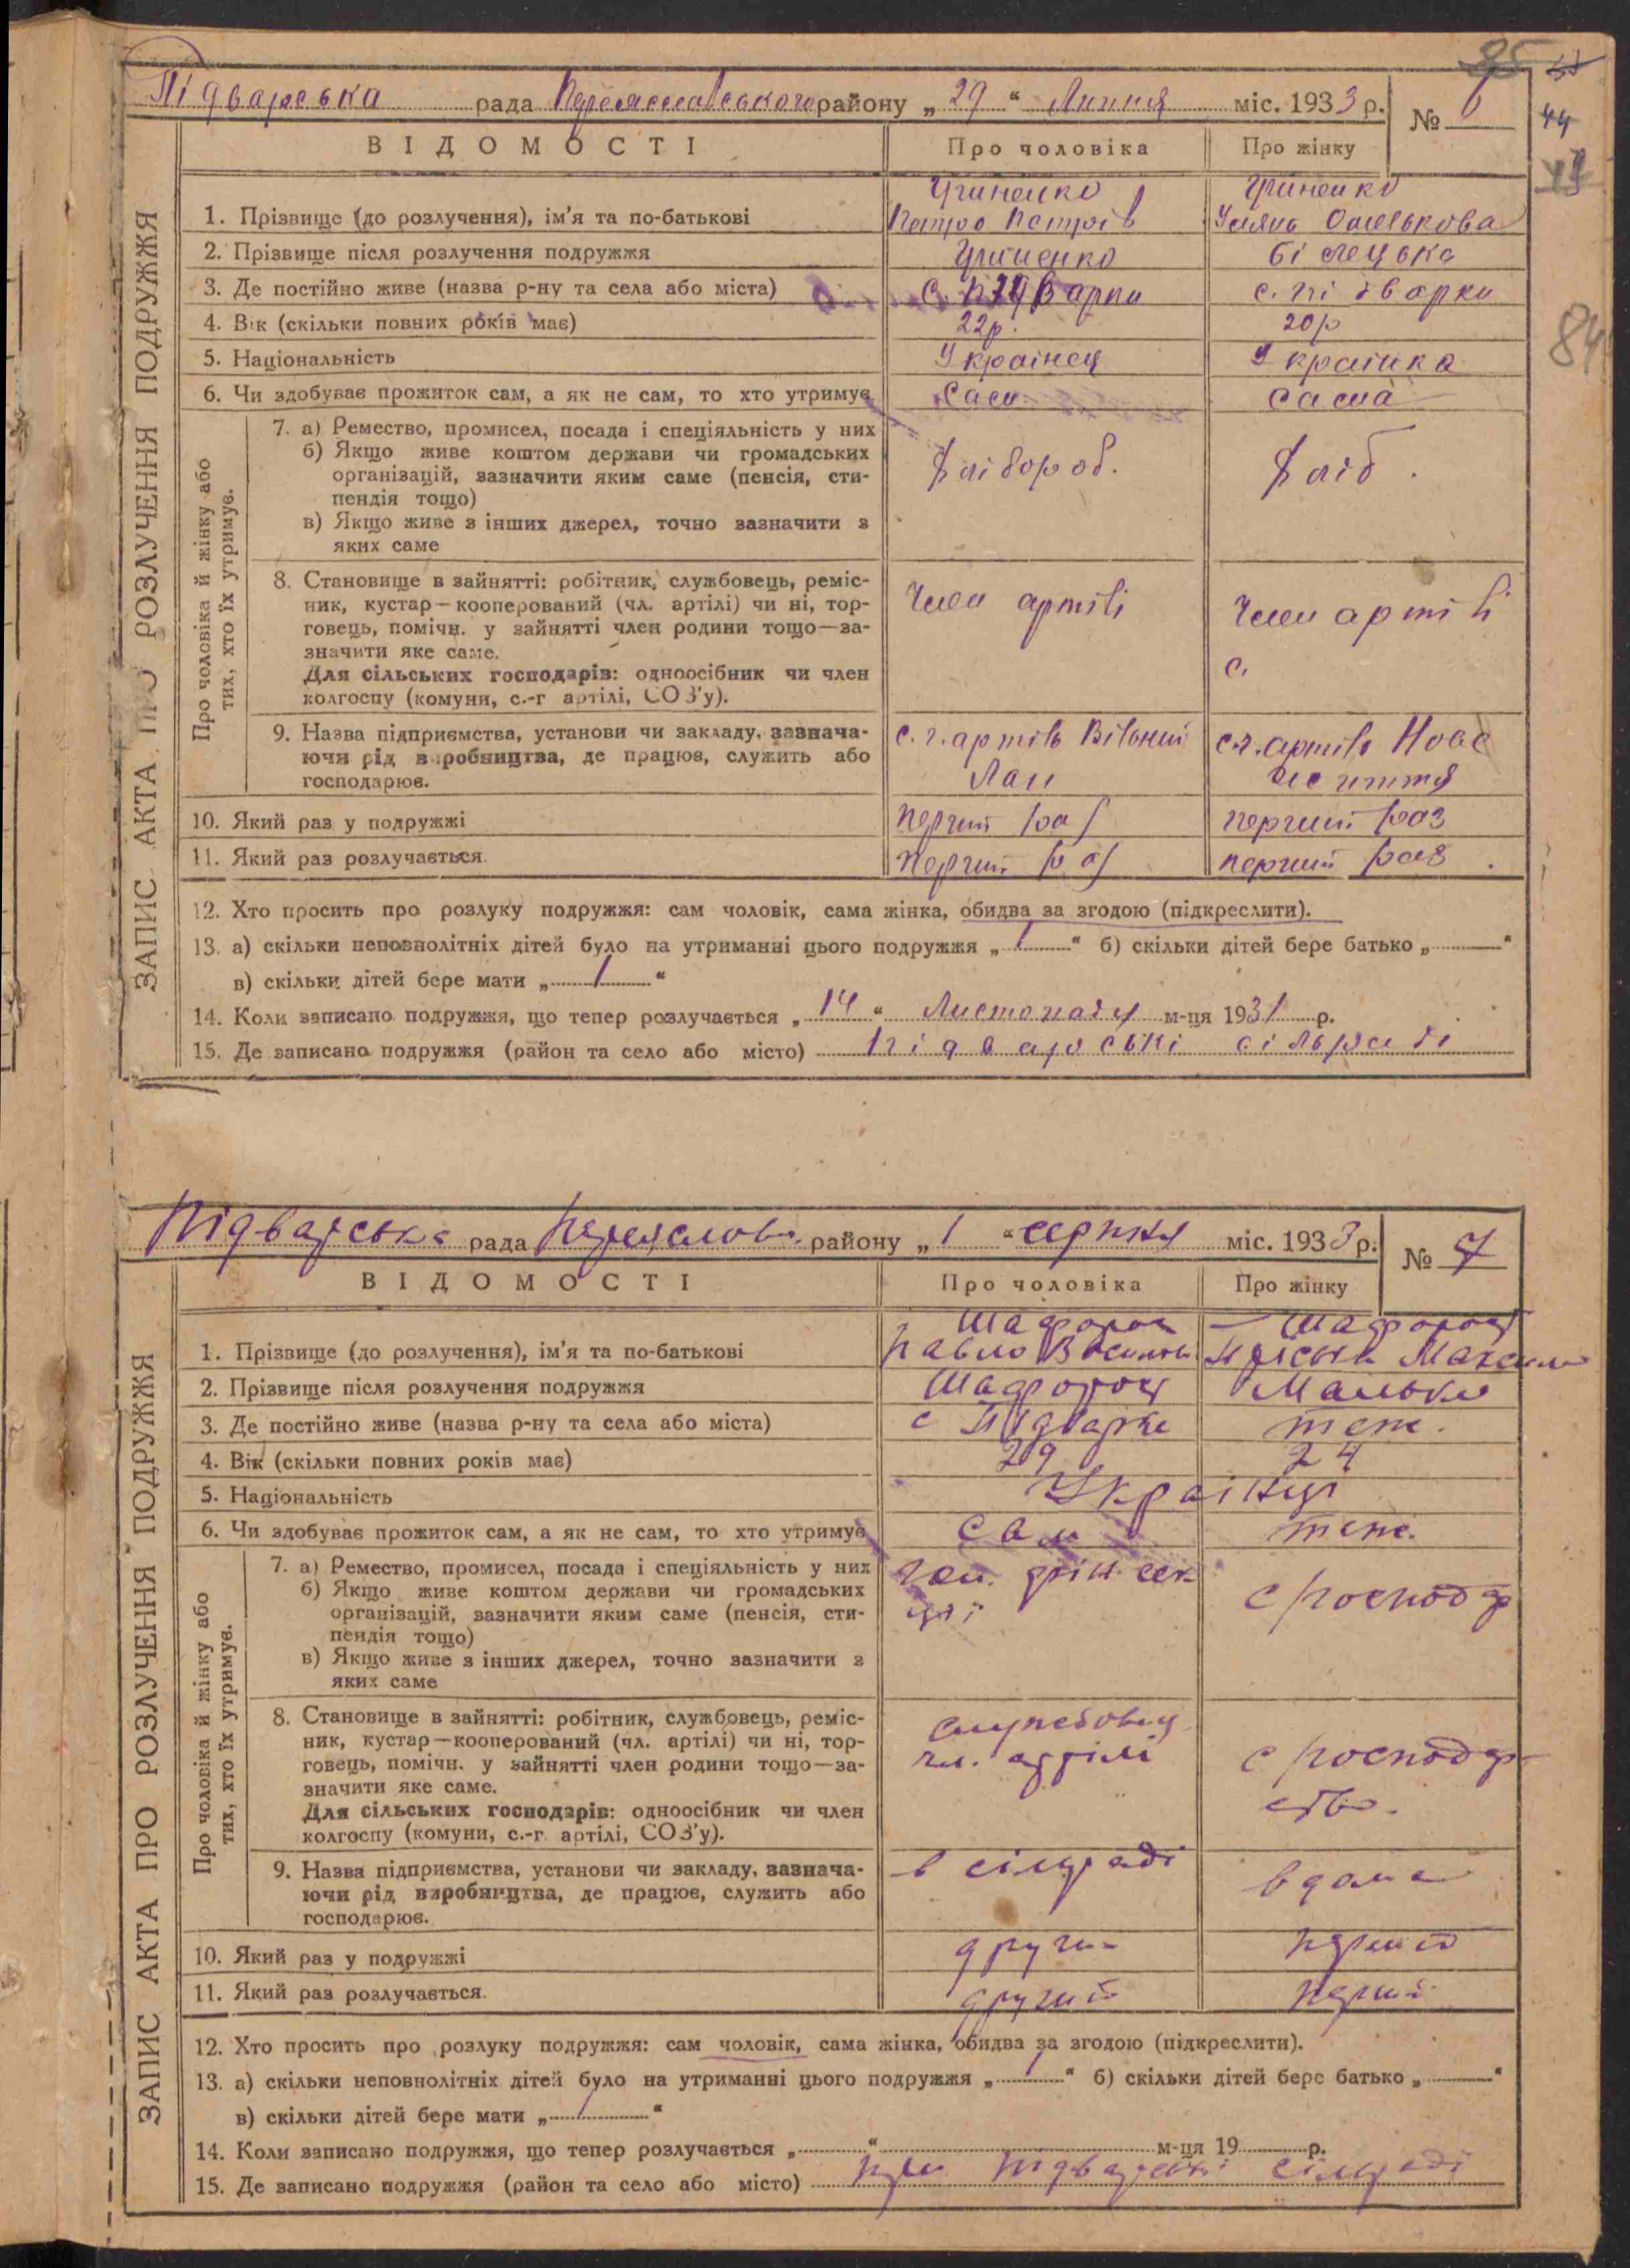 85
44
Підварська рада Переяславського району „ 29 “ Липня міс. 1933 р. № 6
84
ЗАПИС АКТА ПРО РОЗЛУЧЕННЯ ПОДРУЖЖЯ
ВІДОМОСТІ Про чоловіка Про жінку
Гриненко Гриненко
1. Прізвище (до розлучення), ім'я та по-батькові Петро Петрів Уляна Олелькова
2. Прізвище після розлучення подружжя Гриненко Білецька
3. Де постійно живе (назва р-ну та села або міста) с. Підварки с. Підварки
4. Вік (скільки повних років має) 22р. 20р
5. Національність Українец Українка
6. Чи здобуває прожиток сам, а як не сам, то хто утримує Сам Сама
Про чоловіка й жінку або тих, хто їх утримує.
7. а) Ремество, промисел, посада і спеціяльність у них
б) Якщо живе коштом держави чи громадських
організацій, зазначити яким саме (пенсія, сти-
пендія тощо)
в) Якщо живе з інших джерел, точно зазначити з
яких саме
Хлібороб. Хліб.
8. Становище в зайнятті: робітник, службовець, реміс-
ник, кустар—кооперований (чл. артілі) чи ні, тор-
говець, помічн. у зайнятті член родини тощо—за-
значити яке саме.
Для сільських господарів: одноосібник чи член
колгоспу (комуни, с.-г артілі, СОЗ'у).
Член артілі Член артілі
с.
9. Назва підприємства, установи чи закладу, зазнача-
ючи рід виробництва, де працює, служить або
господарює.
с.г. артіль Вільний
Лан
с.г. артіль Нове
життя
10. Який раз у подружжі перший раз перший раз
11. Який раз розлучається. перший раз перший раз.
12. Хто просить про розлуку подружжя: сам чоловік, сама жінка, обидва за згодою (підкреслити).
13. а) скільки неповнолітніх дітей було на утриманні цього подружжя „ 1 “ б) скільки дітей бере батько „ “
в) скільки дітей бере мати „ 1 “
14. Коли записано подружжя, що тепер розлучається „ 14 “ Листопада м-ця 1931 р.
15. Де записано подружжя (район та село або місто) Підварські сільраді
Підварська рада Переяслов. району „ 1 “ серпня міс. 1933 р. № 7
ЗАПИС АКТА ПРО РОЗЛУЧЕННЯ ПОДРУЖЖЯ
ВІДОМОСТІ Про чоловіка Про жінку
1. Прізвище (до розлучення), ім'я та по-батькові Павло
2. Прізвище після розлучення подружжя
3. Де постійно живе (назва р-ну та села або міста) с Підварки теж.
4. Вік (скільки повних років має) 29 24
5. Національність Українці
6. Чи здобуває прожиток сам, а як не сам, то хто утримує сам теж.
Про чоловіка й жінку або тих, хто їх утримує.
7. а) Ремество, промисел, посада і спеціяльність у них
б) Якщо живе коштом держави чи громадських
організацій, зазначити яким саме (пенсія, сти-
пендія тощо)
в) Якщо живе з інших джерел, точно зазначити з
яких саме
гол. фін. сек
ції
с/господар
8. Становище в зайнятті: робітник, службовець, реміс-
ник, кустар—кооперований (чл. артілі) чи ні, тор-
говець, помічн. у зайнятті член родини тощо—за-
значити яке саме.
Для сільських господарів: одноосібник чи член
колгоспу (комуни, с.-г. артілі, СОЗ'у).
службовец
чл. артілі
с/господар-
ство.
9. Назва підприємства, установи чи закладу, зазнача-
ючи рід виробництва, де працює, служить або
господарює.
в сільраді вдома
10. Який раз у подружжі другий перший
11. Який раз розлучається. другий перший
12. Хто просить про розлуку подружжя: сам чоловік, сама жінка, обидва за згодою (підкреслити).
13. а) скільки неповнолітніх дітей було на утриманні цього подружжя „ 1 “ б) скільки дітей бере батько „ “
в) скільки дітей бере мати „ 1 “
14. Коли записано подружжя, що тепер розлучається „ “ м-ця 19 р.
15. Де записано подружжя (район та село або місто) при Підварські сільраді